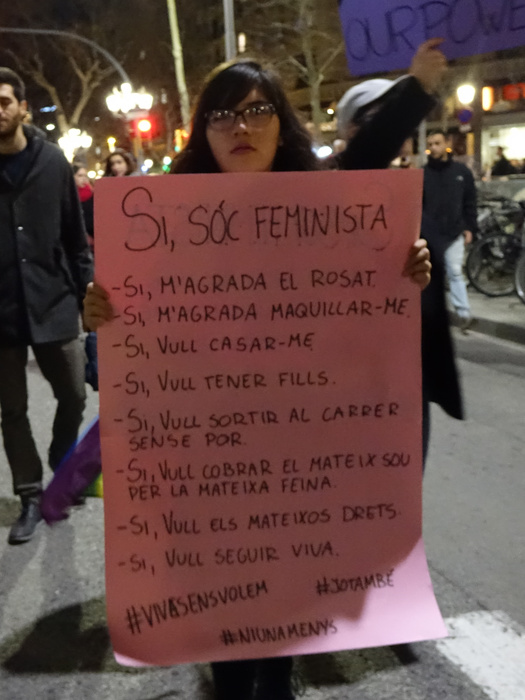 OUR POWE
SI, SÓC FEMINISTA
-SI, M'AGRADA EL ROSAT.
-SI, M'AGRADA MAQUILLAR-ME.
-SI, VULL CASAR-ME
-SI, VULL TENER FILLS.
-SI, VULL SORTIR AL CARRER
SENSE POR.
-SI, VULL COBRAR EL MATEIX SOU
PER LA MATEIXA FEINA.
-SI, VULL ELS MATEIXOS DRETS.
-SI, VULL SEGUIR VIVA.
#VIVASENSVOLEM #JOTAMBÉ
#NIUNAMENYS